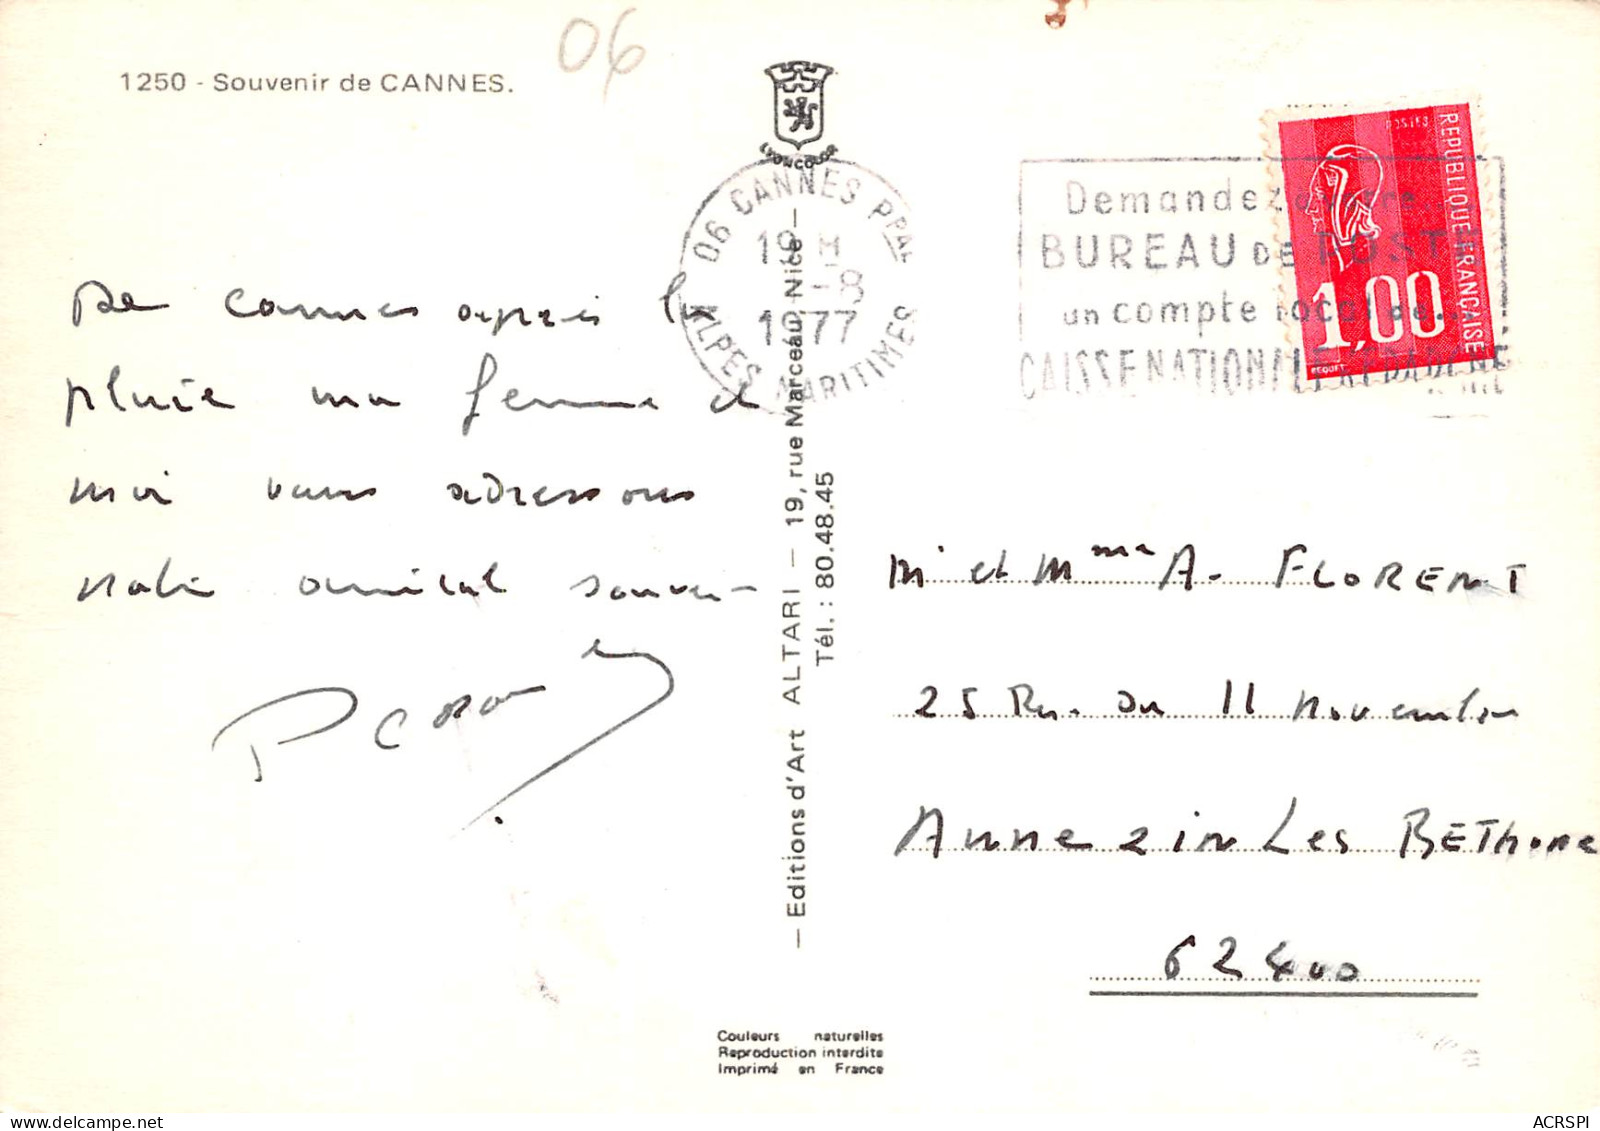 06
1250 - Souvenir de CANNES.
LYONCOLOR
06 CANNES PPAL
ALPES MARITIMES
19 H
-8
1977
Demandez à votre
BUREAU DE POSTE
un compte total de...
CAISSE NATIONALE D'EPARGNE
POSTES
REPUBLIQUE FRANÇAISE
1,00
BEQUET
De Cannes après la
pluie ma femme et
moi vous adressons
notre amical souvenir
— Editions d'Art ALTARI — 19, rue Marceau, Nice —
Tél. : 80.48.45
Mr et Mme A. FLORENT
25 Rue Du 11 Novembre
Annezin Les BETHUNE
62400
Couleurs naturelles
Reproduction interdite
Imprimé en France
ACRSPI